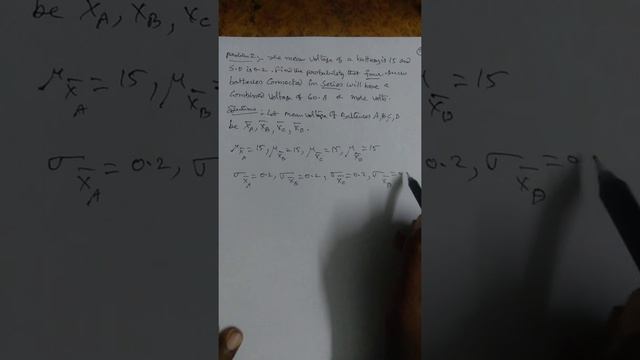 Problem 2, The mean voltage of a battery is 15 and
S.D is 0.2. Find the probability that four such
batteries connected in series will have a
combined voltage of 60.8 or more volts.
Solution: Let mean voltage of batteries A, B, C, D
be X̄_A, X̄_B, X̄_C, X̄_D.
μ_X̄_A = 15, μ_X̄_B = 15, μ_X̄_C = 15, μ_X̄_D = 15
σ_X̄_A = 0.2, σ_X̄_B = 0.2, σ_X̄_C = 0.2, σ_X̄_D =